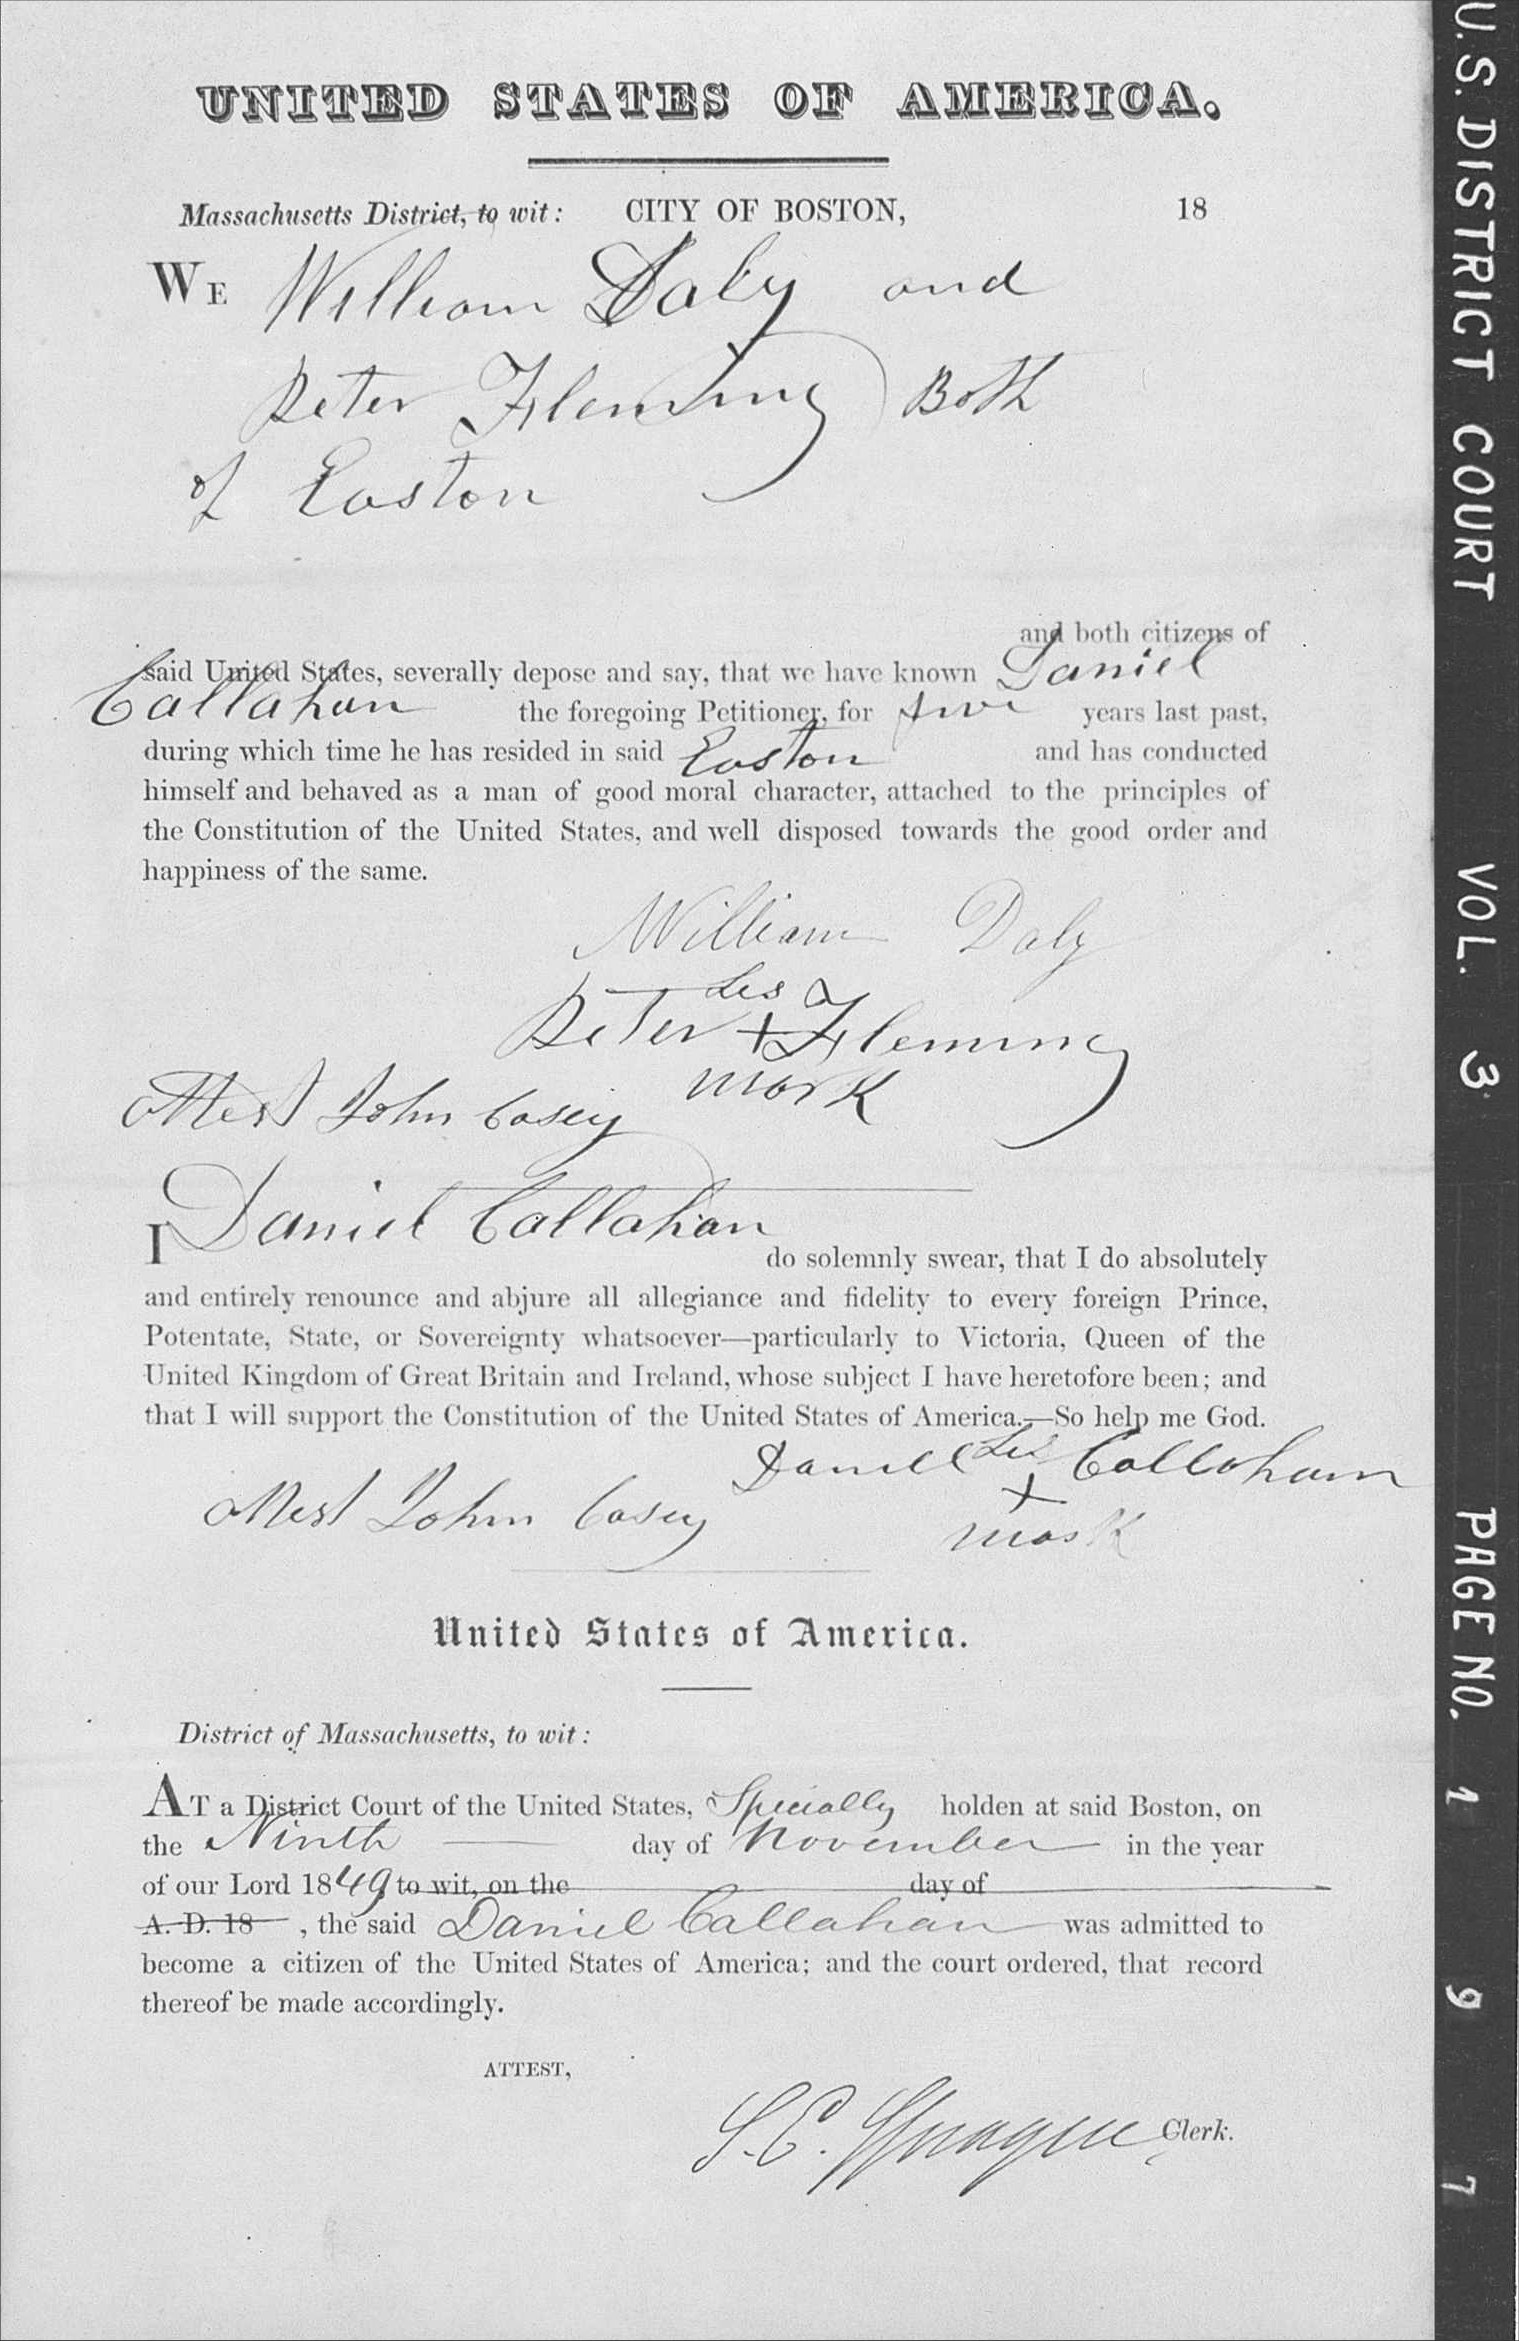 UNITED STATES OF AMERICA.
Massachusetts District, to wit: CITY OF BOSTON, 18
WE William Daly and
Peter Fleming Both
of Easton
and both citizens of
said United States, severally depose and say, that we have known Daniel
Callahan the foregoing Petitioner, for years last past,
during which time he has resided in said Easton and has conducted
himself and behaved as a man of good moral character, attached to the principles of
the Constitution of the United States, and well disposed towards the good order and
happiness of the same.
William Daly
his
Peter + Fleming
mark
Attest John Casey
I Daniel Callahan
do solemnly swear, that I do absolutely
and entirely renounce and abjure all allegiance and fidelity to every foreign Prince,
Potentate, State, or Sovereignty whatsoever—particularly to Victoria, Queen of the
United Kingdom of Great Britain and Ireland, whose subject I have heretofore been; and
that I will support the Constitution of the United States of America.—So help me God.
Daniel his Callahan
+
Attest John Casey mark
United States of America.
District of Massachusetts, to wit:
AT a District Court of the United States, Specially holden at said Boston, on
the Ninth day of November in the year
of our Lord 1849 to wit, on the day of
A. D. 18 , the said Daniel Callahan was admitted to
become a citizen of the United States of America; and the court ordered, that record
thereof be made accordingly.
ATTEST,
S. E. Sprague Clerk.
U.S. DISTRICT COURT VOL. 3 PAGE NO. 197